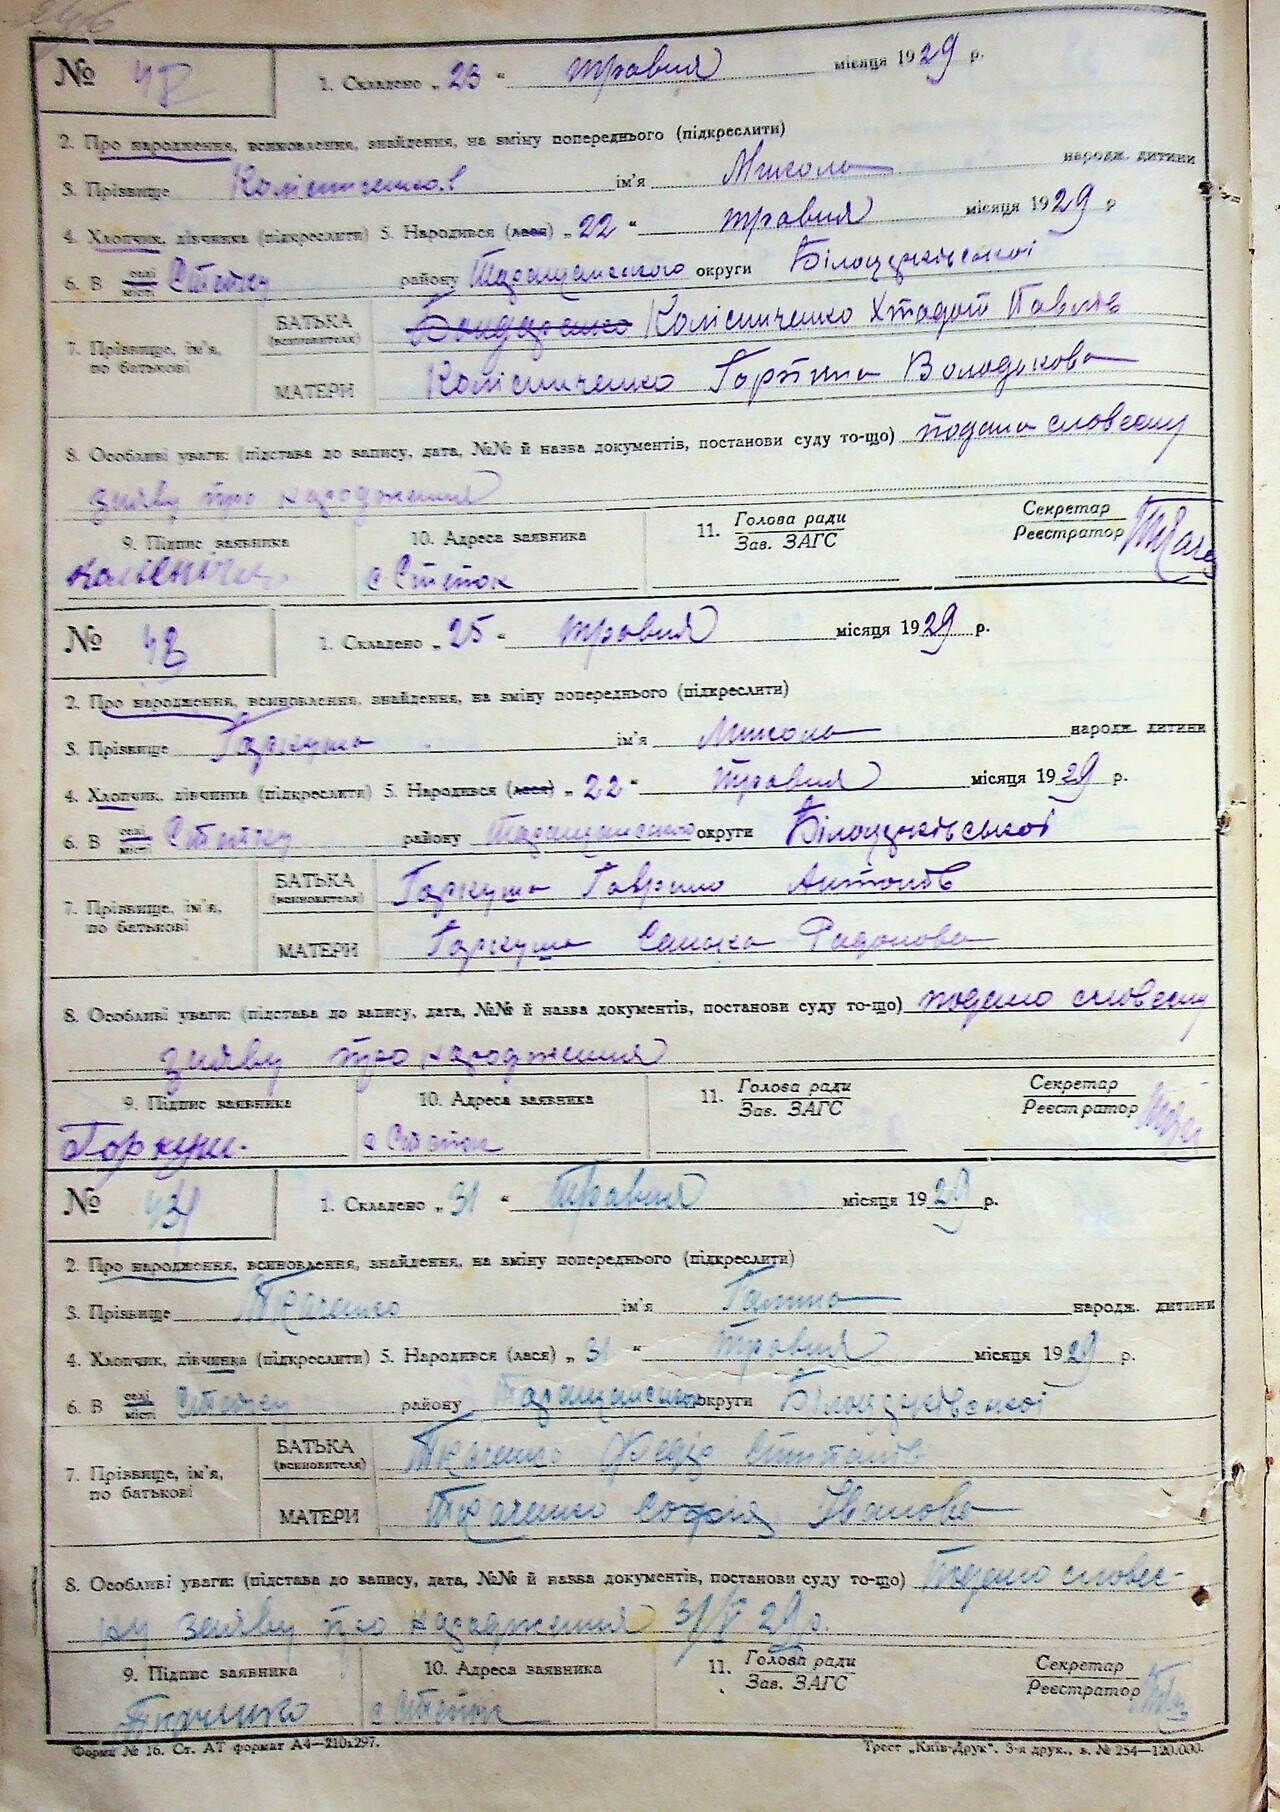 № 1. Складено „ 23 “ травня місяця 1929 р.
2. Про народження, всиновлення, знайдення, на зміну попереднього (підкреслити)
3. Прізвище ім'я Микола народж. дитини
4. Хлопчик, дівчинка (підкреслити) 5. Народився (лася) „ 22 “ травня місяця 1929 р
6. В селі місті Степку району Таращанського округи Білоцерківської
7. Прізвище, ім'я, по батькові БАТЬКА (всиновителя) Бондаренко Колісниченко Павлів
МАТЕРИ Колісниченко Горпина
8. Особливі уваги: (підстава до запису, дата, №№ й назва документів, постанови суду то-що) подана словесну
заяву про народження
9. Підпис заявника 10. Адреса заявника 11. Голова ради Зав. ЗАГС Секретар Реєстратор
с Степок
№ 1. Складено „ 25 “ травня місяця 1929 р.
2. Про народження, всиновлення, знайдення, на зміну попереднього (підкреслити)
3. Прізвище Гаркуша ім'я Микола народж. дитини
4. Хлопчик, дівчинка (підкреслити) 5. Народився (лася) „ 22 “ травня місяця 1929 р.
6. В селі місті Степку району Таращанського округи Білоцерківської
7. Прізвище, ім'я, по батькові БАТЬКА (всиновителя) Гаркуша Гаврило Антонів
МАТЕРИ Гаркуша
8. Особливі уваги: (підстава до запису, дата, №№ й назва документів, постанови суду то-що) подано словесну
заяву про народження
9. Підпис заявника 10. Адреса заявника 11. Голова ради Зав. ЗАГС Секретар Реєстратор
с Степок
№ 1. Складено „ 31 “ травня місяця 1929 р.
2. Про народження, всиновлення, знайдення, на зміну попереднього (підкреслити)
3. Прізвище Ткаченко ім'я Галина народж. дитини
4. Хлопчик, дівчинка (підкреслити) 5. Народився (лася) „ 31 “ травня місяця 1929 р.
6. В селі місті Степку району Таращанського округи Білоцерківської
7. Прізвище, ім'я, по батькові БАТЬКА (всиновителя) Ткаченко Федір Степанів
МАТЕРИ Ткаченко Софія Іванова
8. Особливі уваги: (підстава до запису, дата, №№ й назва документів, постанови суду то-що) подано словес-
ну заяву про народження 31/V 29 р.
9. Підпис заявника 10. Адреса заявника 11. Голова ради Зав. ЗАГС Секретар Реєстратор
Ткаченко с Степок
Форма № 16. Ст. АТ формат А4—210х297. Трест „Київ-Друк". 3-я друк., з. № 254—120.000.